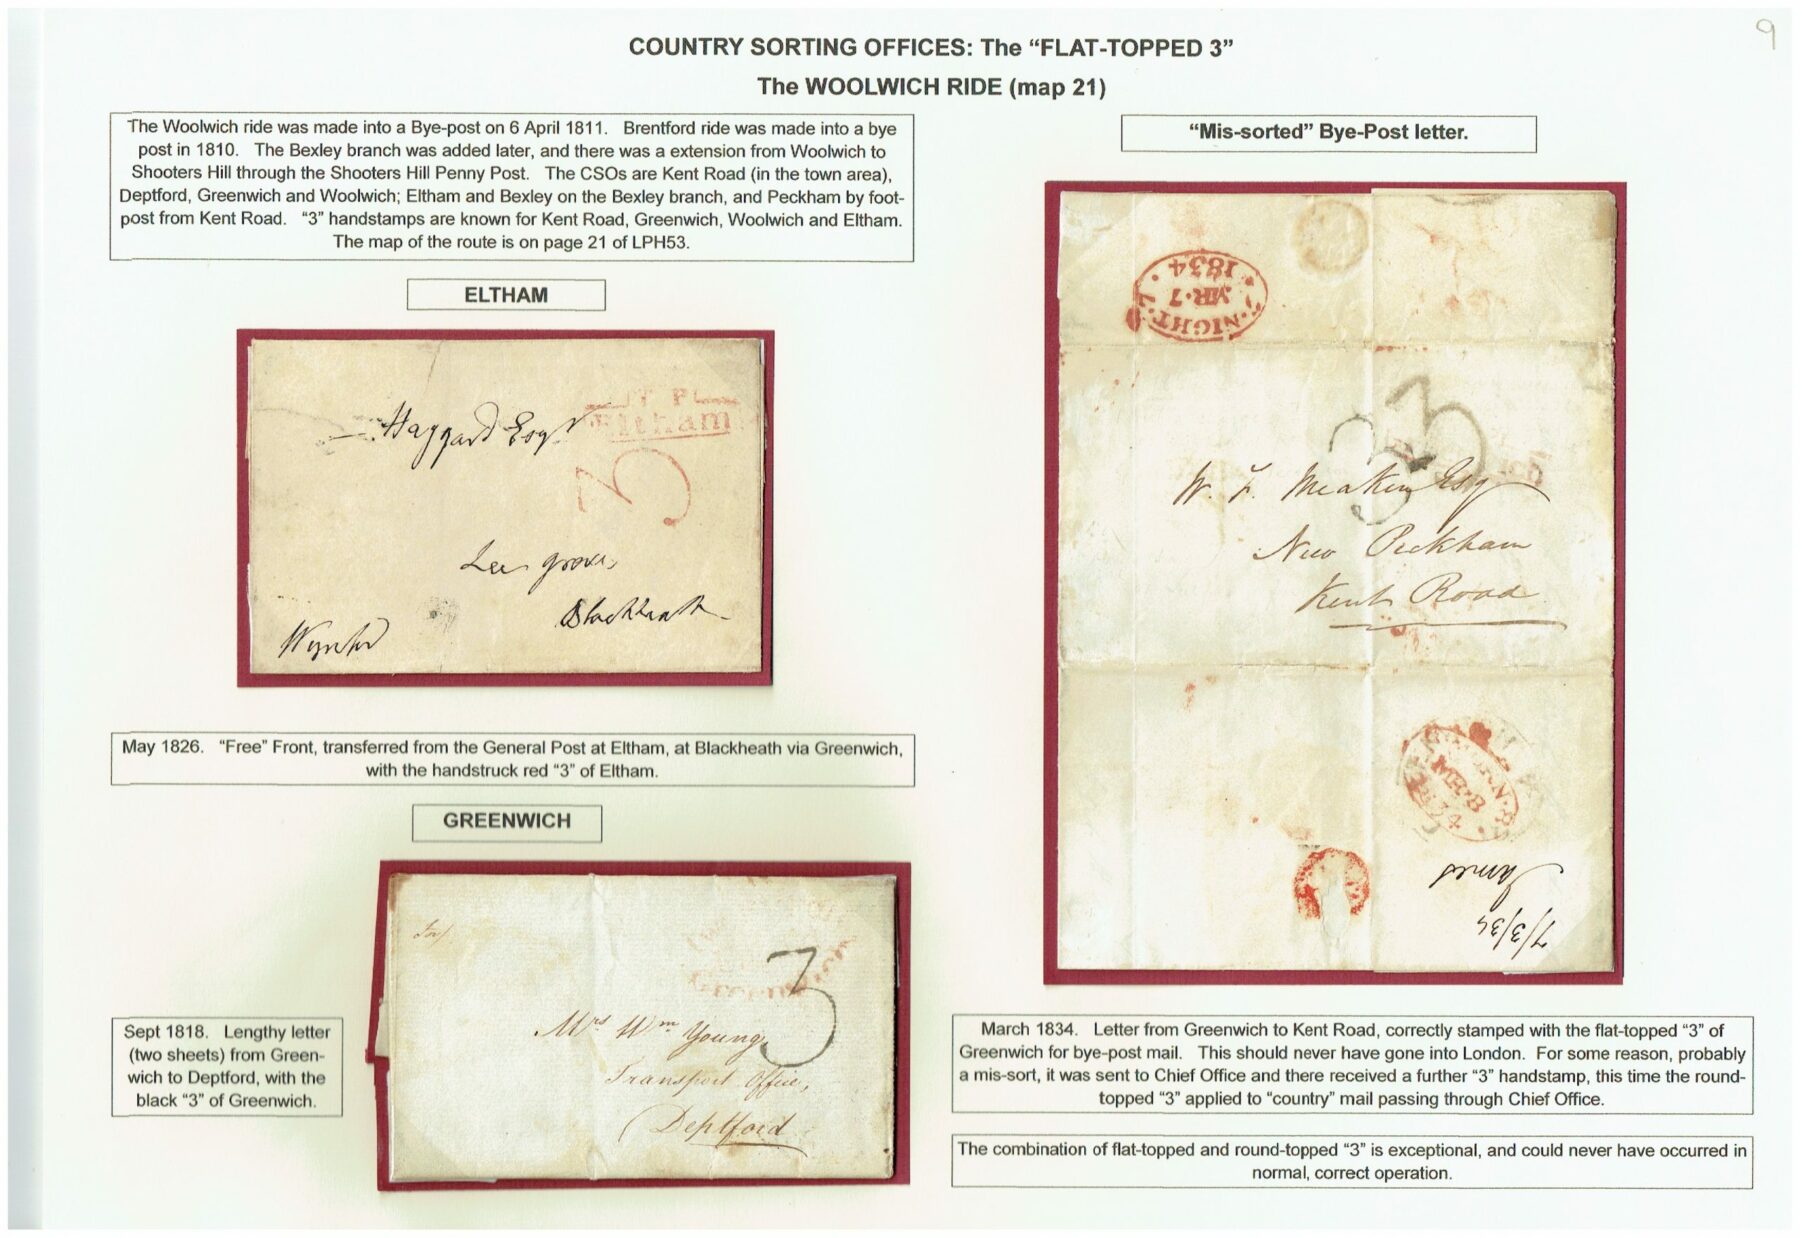 9
COUNTRY SORTING OFFICES: The “FLAT-TOPPED 3”
The WOOLWICH RIDE (map 21)
The Woolwich ride was made into a Bye-post on 6 April 1811. Brentford ride was made into a bye
post in 1810. The Bexley branch was added later, and there was a extension from Woolwich to
Shooters Hill through the Shooters Hill Penny Post. The CSOs are Kent Road (in the town area),
Deptford, Greenwich and Woolwich; Eltham and Bexley on the Bexley branch, and Peckham by foot-
post from Kent Road. “3” handstamps are known for Kent Road, Greenwich, Woolwich and Eltham.
The map of the route is on page 21 of LPH53.
ELTHAM
T P
Eltham
Haggard Esqr
3
Lee grove
Blackheath
May 1826. “Free” Front, transferred from the General Post at Eltham, at Blackheath via Greenwich,
with the handstruck red “3” of Eltham.
GREENWICH
3
Mrs Wm Young
Transport Office,
Deptford
Sept 1818. Lengthy letter
(two sheets) from Green-
wich to Deptford, with the
black “3” of Greenwich.
“Mis-sorted” Bye-Post letter.
NIGHT. 7
MR. 7
1834
3 3
W. F. Meakin Esq
New Peckham
Kent Road
MR. 8
1834
James
7/3/34
March 1834. Letter from Greenwich to Kent Road, correctly stamped with the flat-topped “3” of
Greenwich for bye-post mail. This should never have gone into London. For some reason, probably
a mis-sort, it was sent to Chief Office and there received a further “3” handstamp, this time the round-
topped “3” applied to “country” mail passing through Chief Office.
The combination of flat-topped and round-topped “3” is exceptional, and could never have occurred in
normal, correct operation.